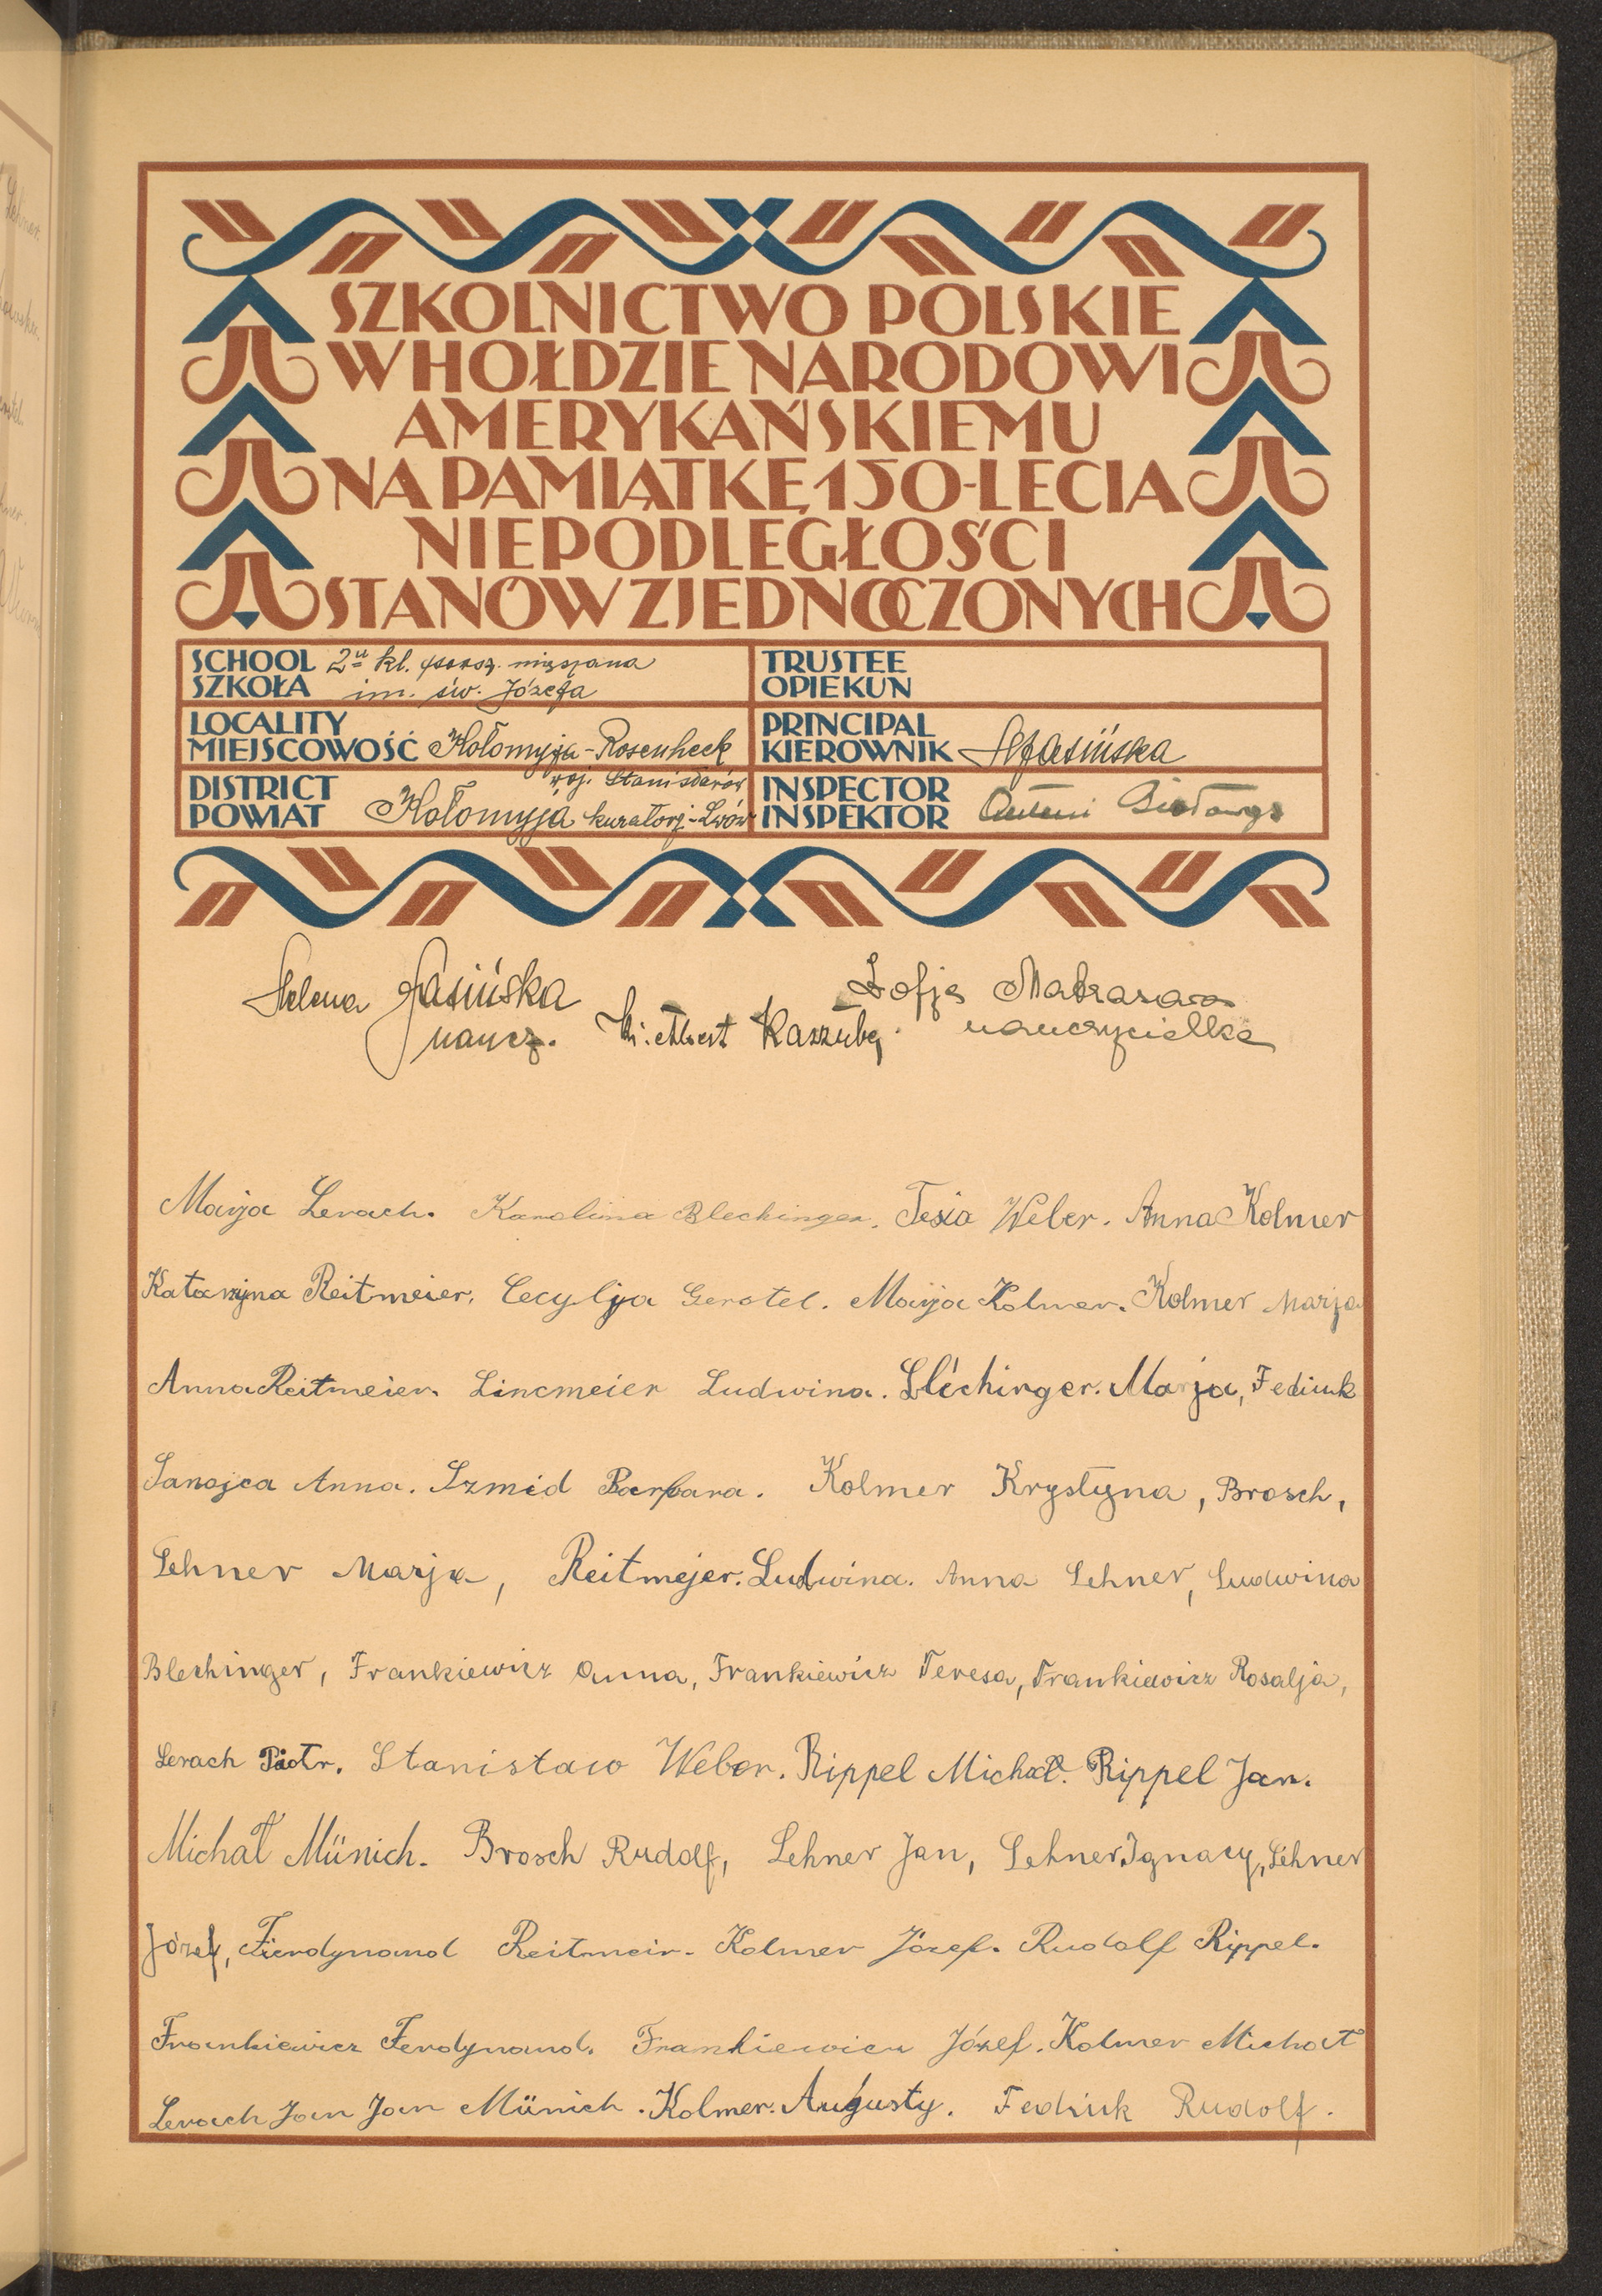 SZKOLNICTWO POLSKIE
W HOŁDZIE NARODOWI
AMERYKAŃSKIEMU
NA PAMIĄTKĘ 150-LECIA
NIEPODLEGŁOŚCI
STANÓW ZJEDNOCZONYCH
SCHOOL 2u kl. powsz. mieszana
SZKOŁA im. św. Józefa
TRUSTEE
OPIEKUN
LOCALITY
MIEJSCOWOŚĆ Kołomyja-Rosenheck
PRINCIPAL
KIEROWNIK HJasińska
DISTRICT woj. Stanisławów
POWIAT Kołomyja kuratorj-Lwów
INSPECTOR
INSPEKTOR Antoni
Helena Jasińska Zofja
naucz. Albert Kaszuba nauczycielka
Marja Lerach. Karolina Blechinger. Tesia Weber. Anna Kolmer
Katarzyna Reitmeier. Cecylja Gerstel. Marja Kolmer. Kolmer Marja
Anna Reitmeier. Lincmeier Ludwina. Blechinger. Marja, Fediuk
Sanojca Anna. Szmid Barbara. Kolmer Krystyna, Brosch,
Lehner Marja, Reitmejer. Ludwina. Anna Lehner, Ludwina
Blechinger, Frankiewicz Anna, Frankiewicz Teresa, Frankiewicz Rosalja,
Lerach Piotr. Stanistaw Weber. Rippel Michał. Rippel Jan.
Michał Münich. Brosch Rudolf, Lehner Jan, Lehner Ignacy, Lehner
Józef, Fierdynand Reitmeir. Kolmer Józef. Rudolf Rippel.
Frankiewicz Ferdynand. Frankiewicz Józef. Kolmer Michał
Lerach Jan Jan Münich. Kolmer. Augusty. Fediuk Rudolf.